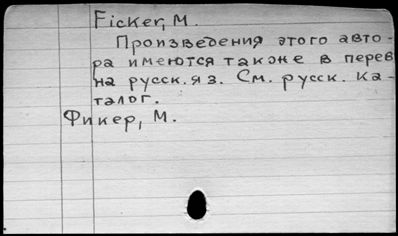 Ficker, M.
Произведения этого авто-
ра имеются также в перев
на русск. яз. См. русск. ка-
талог.
Фикер, М.